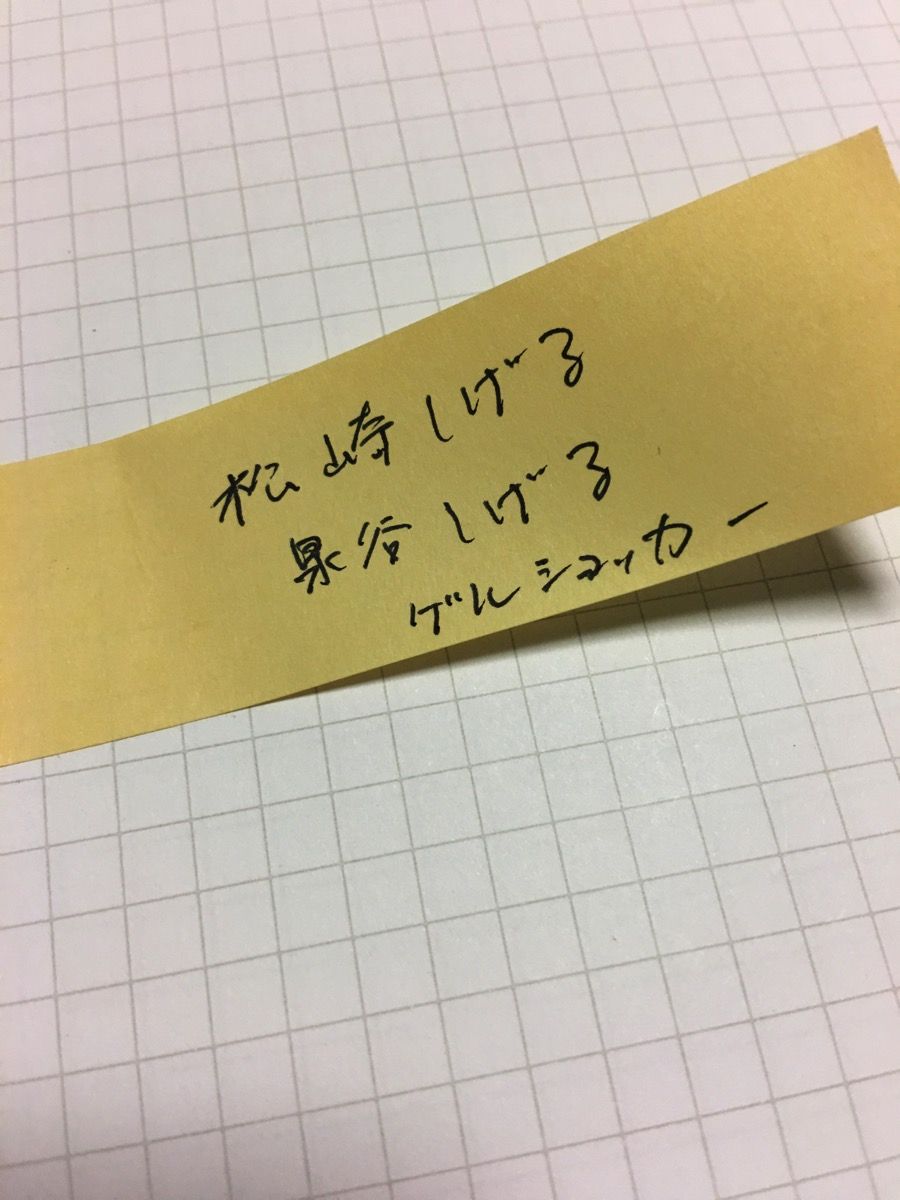 松崎しげる
泉谷しげる
ゲルショッカー